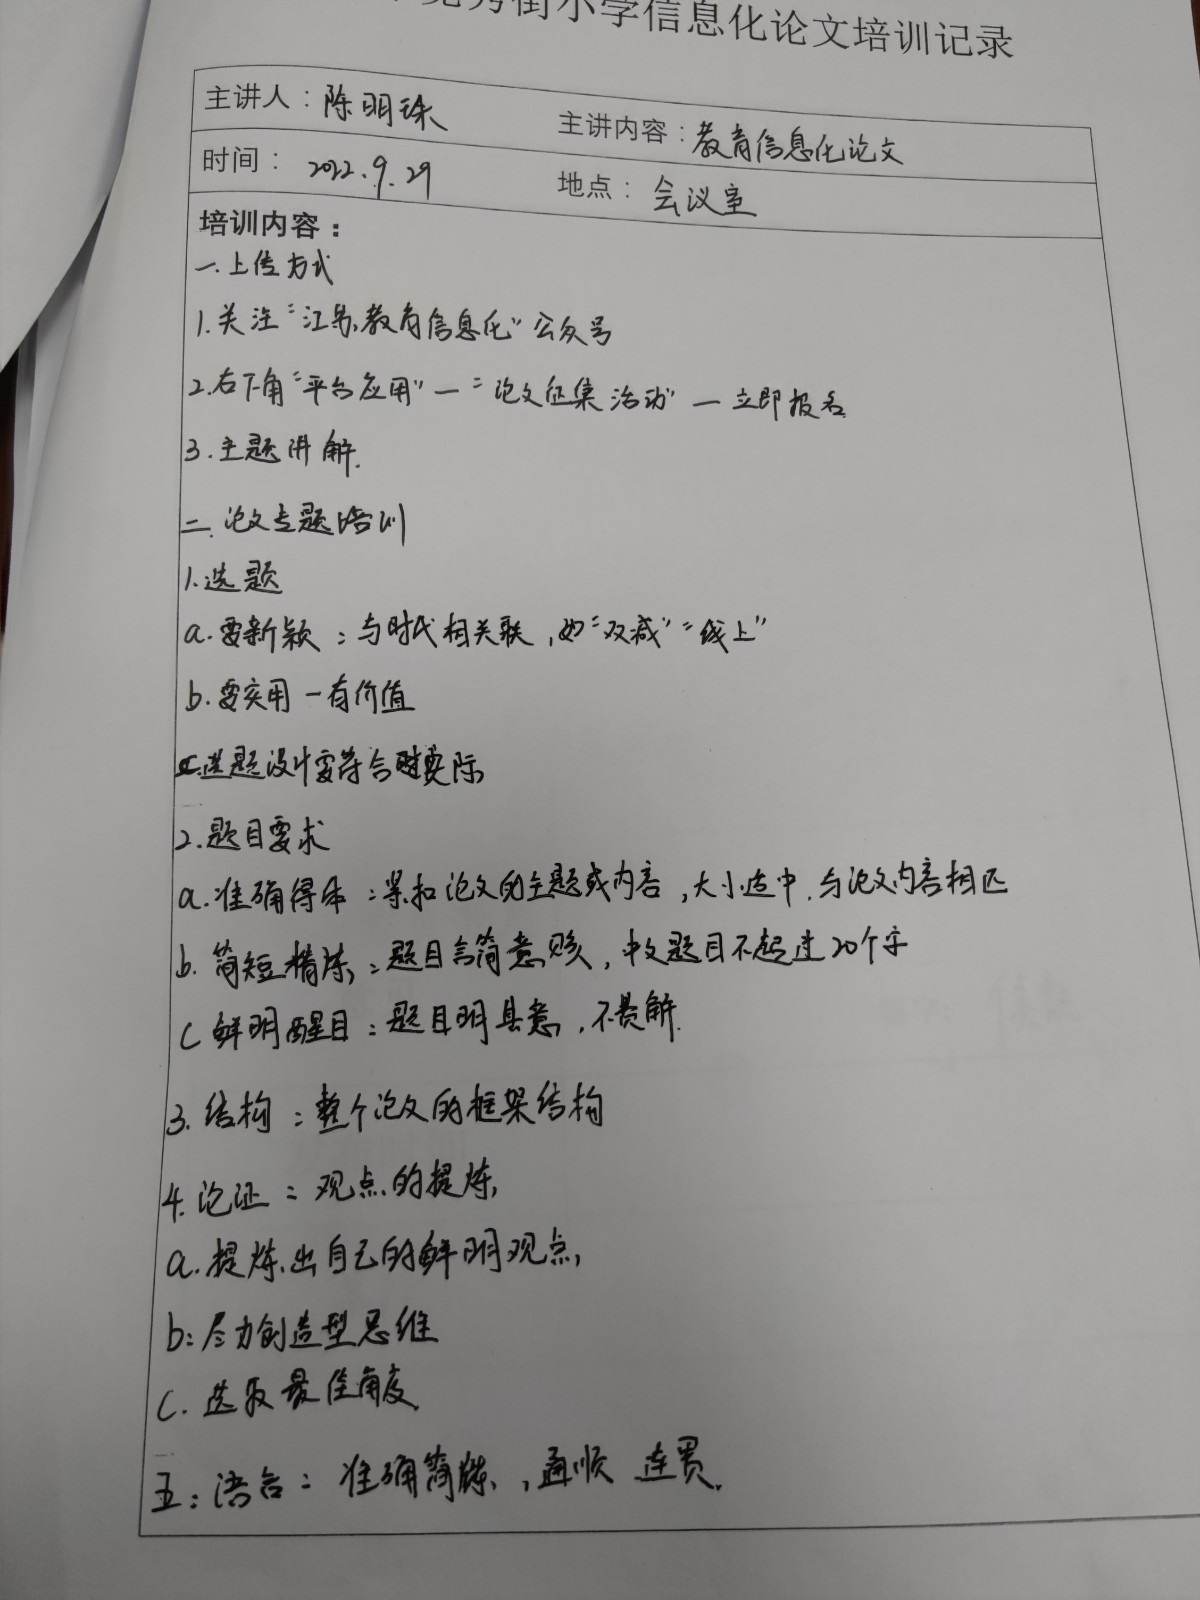 秀街小学信息化论文培训记录
主讲人：陈明珠 主讲内容：教育信息化论文
时间：2022.9.29 地点：会议室
培训内容：
一.上传方式
1.关注“江苏教育信息化”公众号
2.右下角“平台应用”—“论文征集活动”—立即报名
3.主题讲解.
二.论文专题培训
1.选题
a.要新颖：与时代相关联，如“双减”“线上”
b.要实用—有价值
c.选题设计要符合实际
2.题目要求
a.准确得体：紧扣论文的主题或内容，大小适中.与论文内容相匹
b.简短精炼：题目言简意赅，中文题目不超过20个字
c 鲜明醒目：题目明具意，不费解.
3.结构：整个论文的框架结构
4.论证：观点的提炼
a.提炼出自己的鲜明观点
b：尽力创造型思维
c.选取最佳角度
五：语言：准确简练，通顺 连贯.